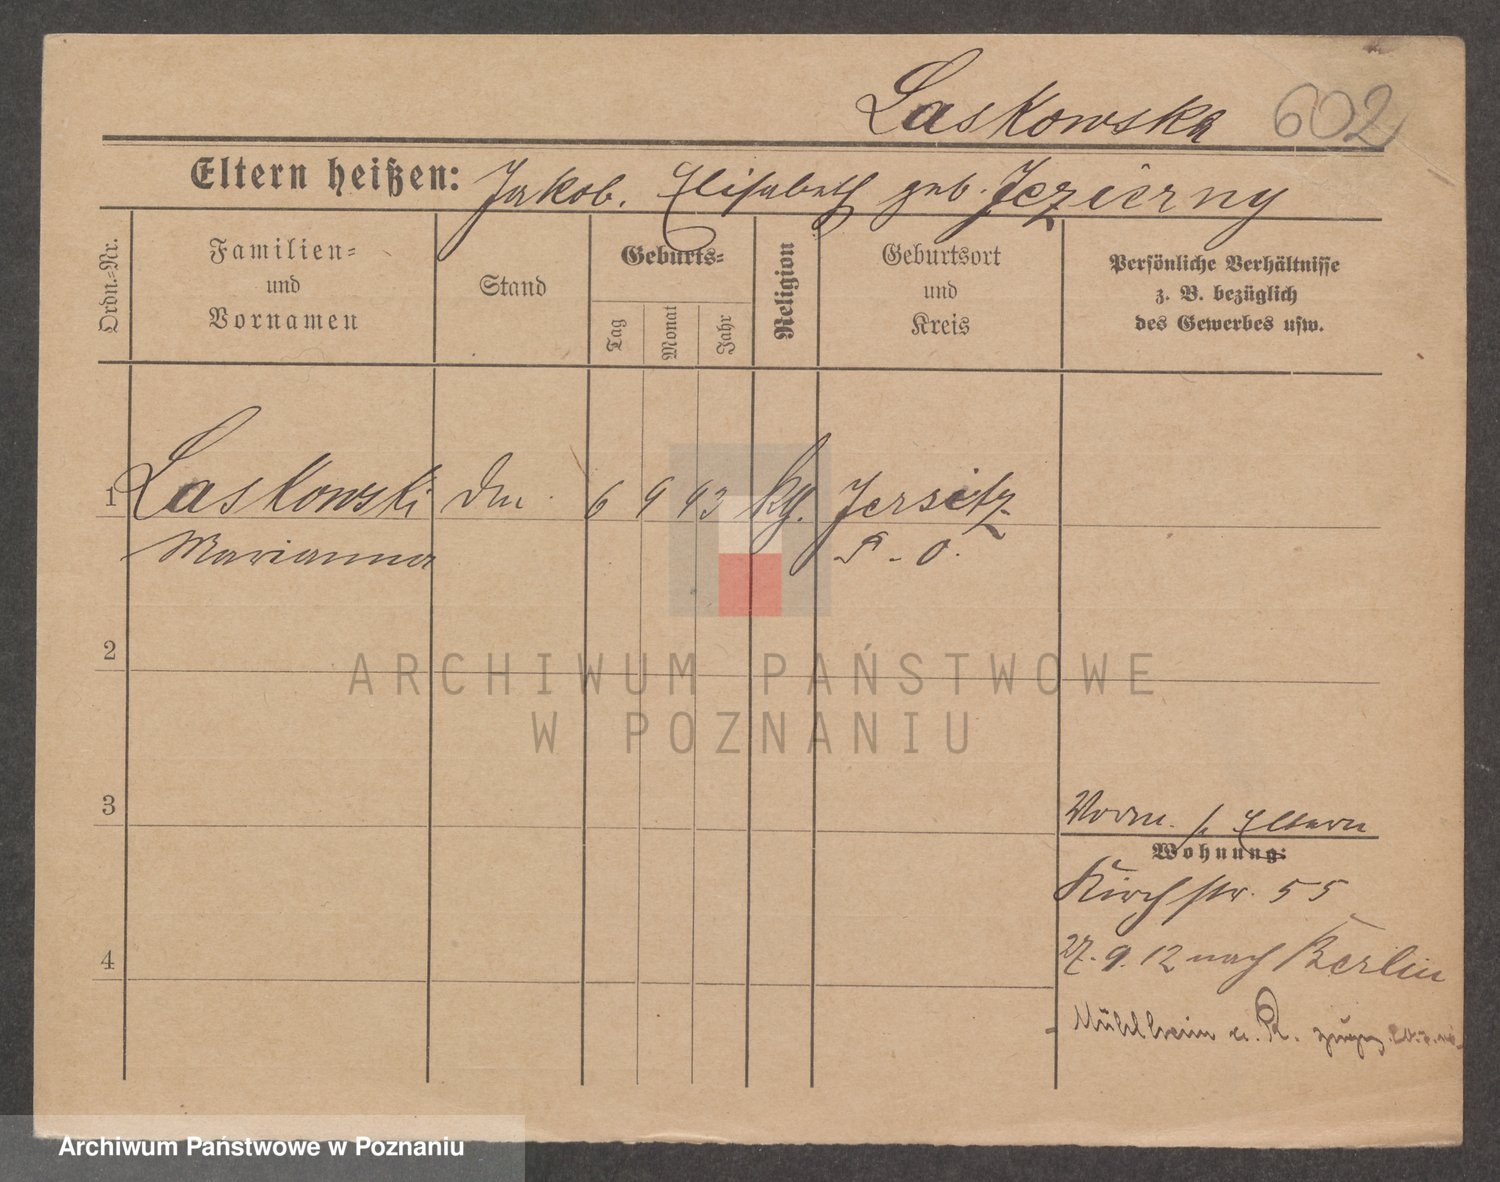 Laskowska 602
Eltern heißen: Jakob. Elisabeth geb. Jezierny
Ordn.-Nr.
Familien-
und
Vornamen
Stand
Geburts-
Tag
Monat
Jahr
Religion
Geburtsort
und
Kreis
Persönliche Verhältnisse
z. B. bezüglich
des Gewerbes usw.
1 Laskowski 6 9 93 kg. Jersitz
Marianna P. O.
2
3
4
Vorm. s. Eltern
Wohnung:
Kirchstr. 55
27. 9. 12 nach Berlin
Mühlheim a. R. zugez.
ARCHIWUM PAŃSTWOWE
W POZNANIU
Archiwum Państwowe w Poznaniu